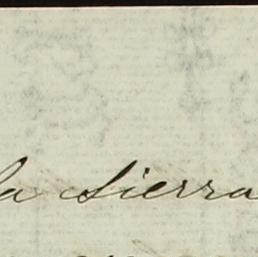 la Sierra